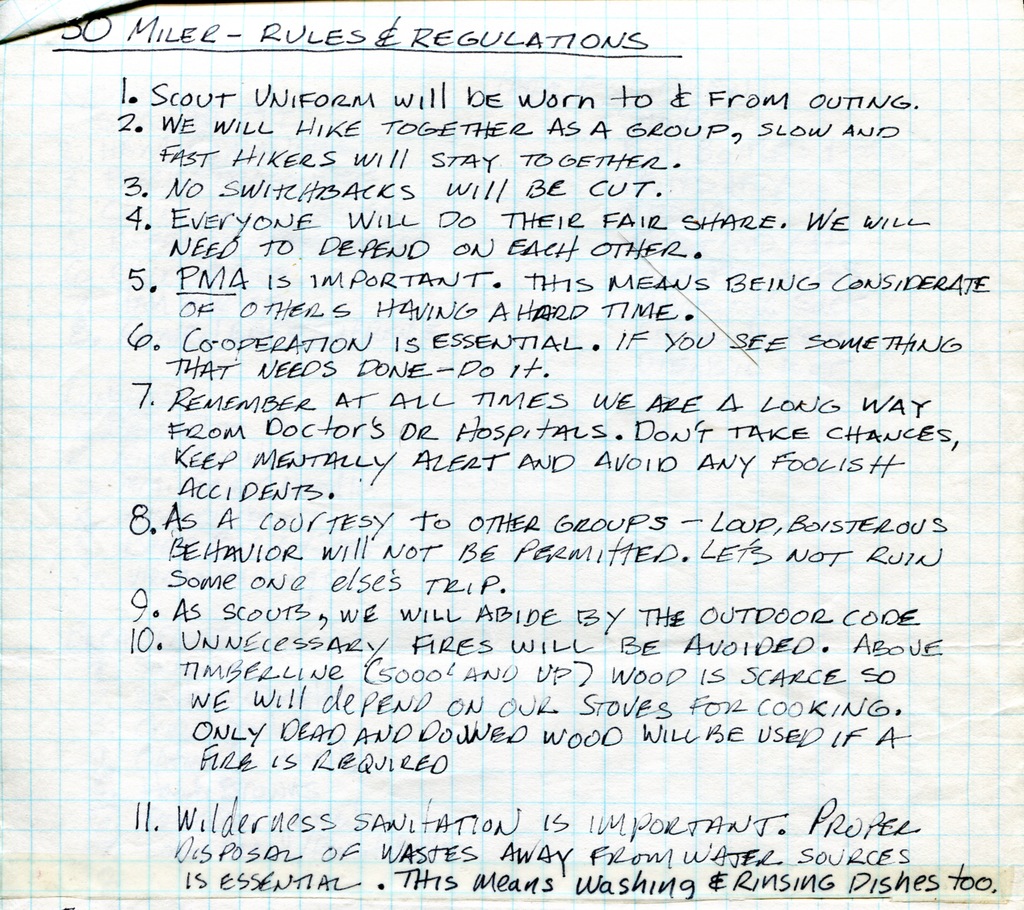 50 MILER - RULES & REGULATIONS
1. SCOUT UNIFORM will be worn to & FROM OUTING.
2. WE WILL HIKE TOGETHER AS A GROUP, SLOW AND
FAST HIKERS will STAY TOGETHER.
3. NO SWITCHBACKS will BE CUT.
4. EVERYONE WILL DO THEIR FAIR SHARE. WE WILL
NEED TO DEPEND ON EACH OTHER.
5. PMA IS IMPORTANT. THIS MEANS BEING CONSIDERATE
OF OTHERS HAVING A HARD TIME.
6. CO-OPERATION IS ESSENTIAL. IF YOU SEE SOMETHING
THAT NEEDS DONE - DO IT.
7. REMEMBER AT ALL TIMES WE ARE A LONG WAY
FROM DOCTOR'S OR HOSPITALS. DON'T TAKE CHANCES,
KEEP MENTALLY ALERT AND AVOID ANY FOOLISH
ACCIDENTS.
8. AS A COURTESY TO OTHER GROUPS - LOUD, BOISTEROUS
BEHAVIOR will NOT BE PERMITTED. LET'S NOT RUIN
SOME ONE else's TRIP.
9. AS SCOUTS, WE WILL ABIDE BY THE OUTDOOR CODE
10. UNNECESSARY FIRES WILL BE AVOIDED. ABOVE
TIMBERLINE (5000' AND UP) WOOD IS SCARCE SO
WE will dEPEND ON OUR STOVES FOR COOKING.
ONLY DEAD AND DOWNED WOOD WILL BE USED IF A
FIRE IS REQUIRED
11. Wilderness SANITATION IS IMPORTANT. PROPER
DISPOSAL OF WASTES AWAY FROM WATER SOURCES
IS ESSENTIAL. THIS Means Washing & RINSING Dishes too.